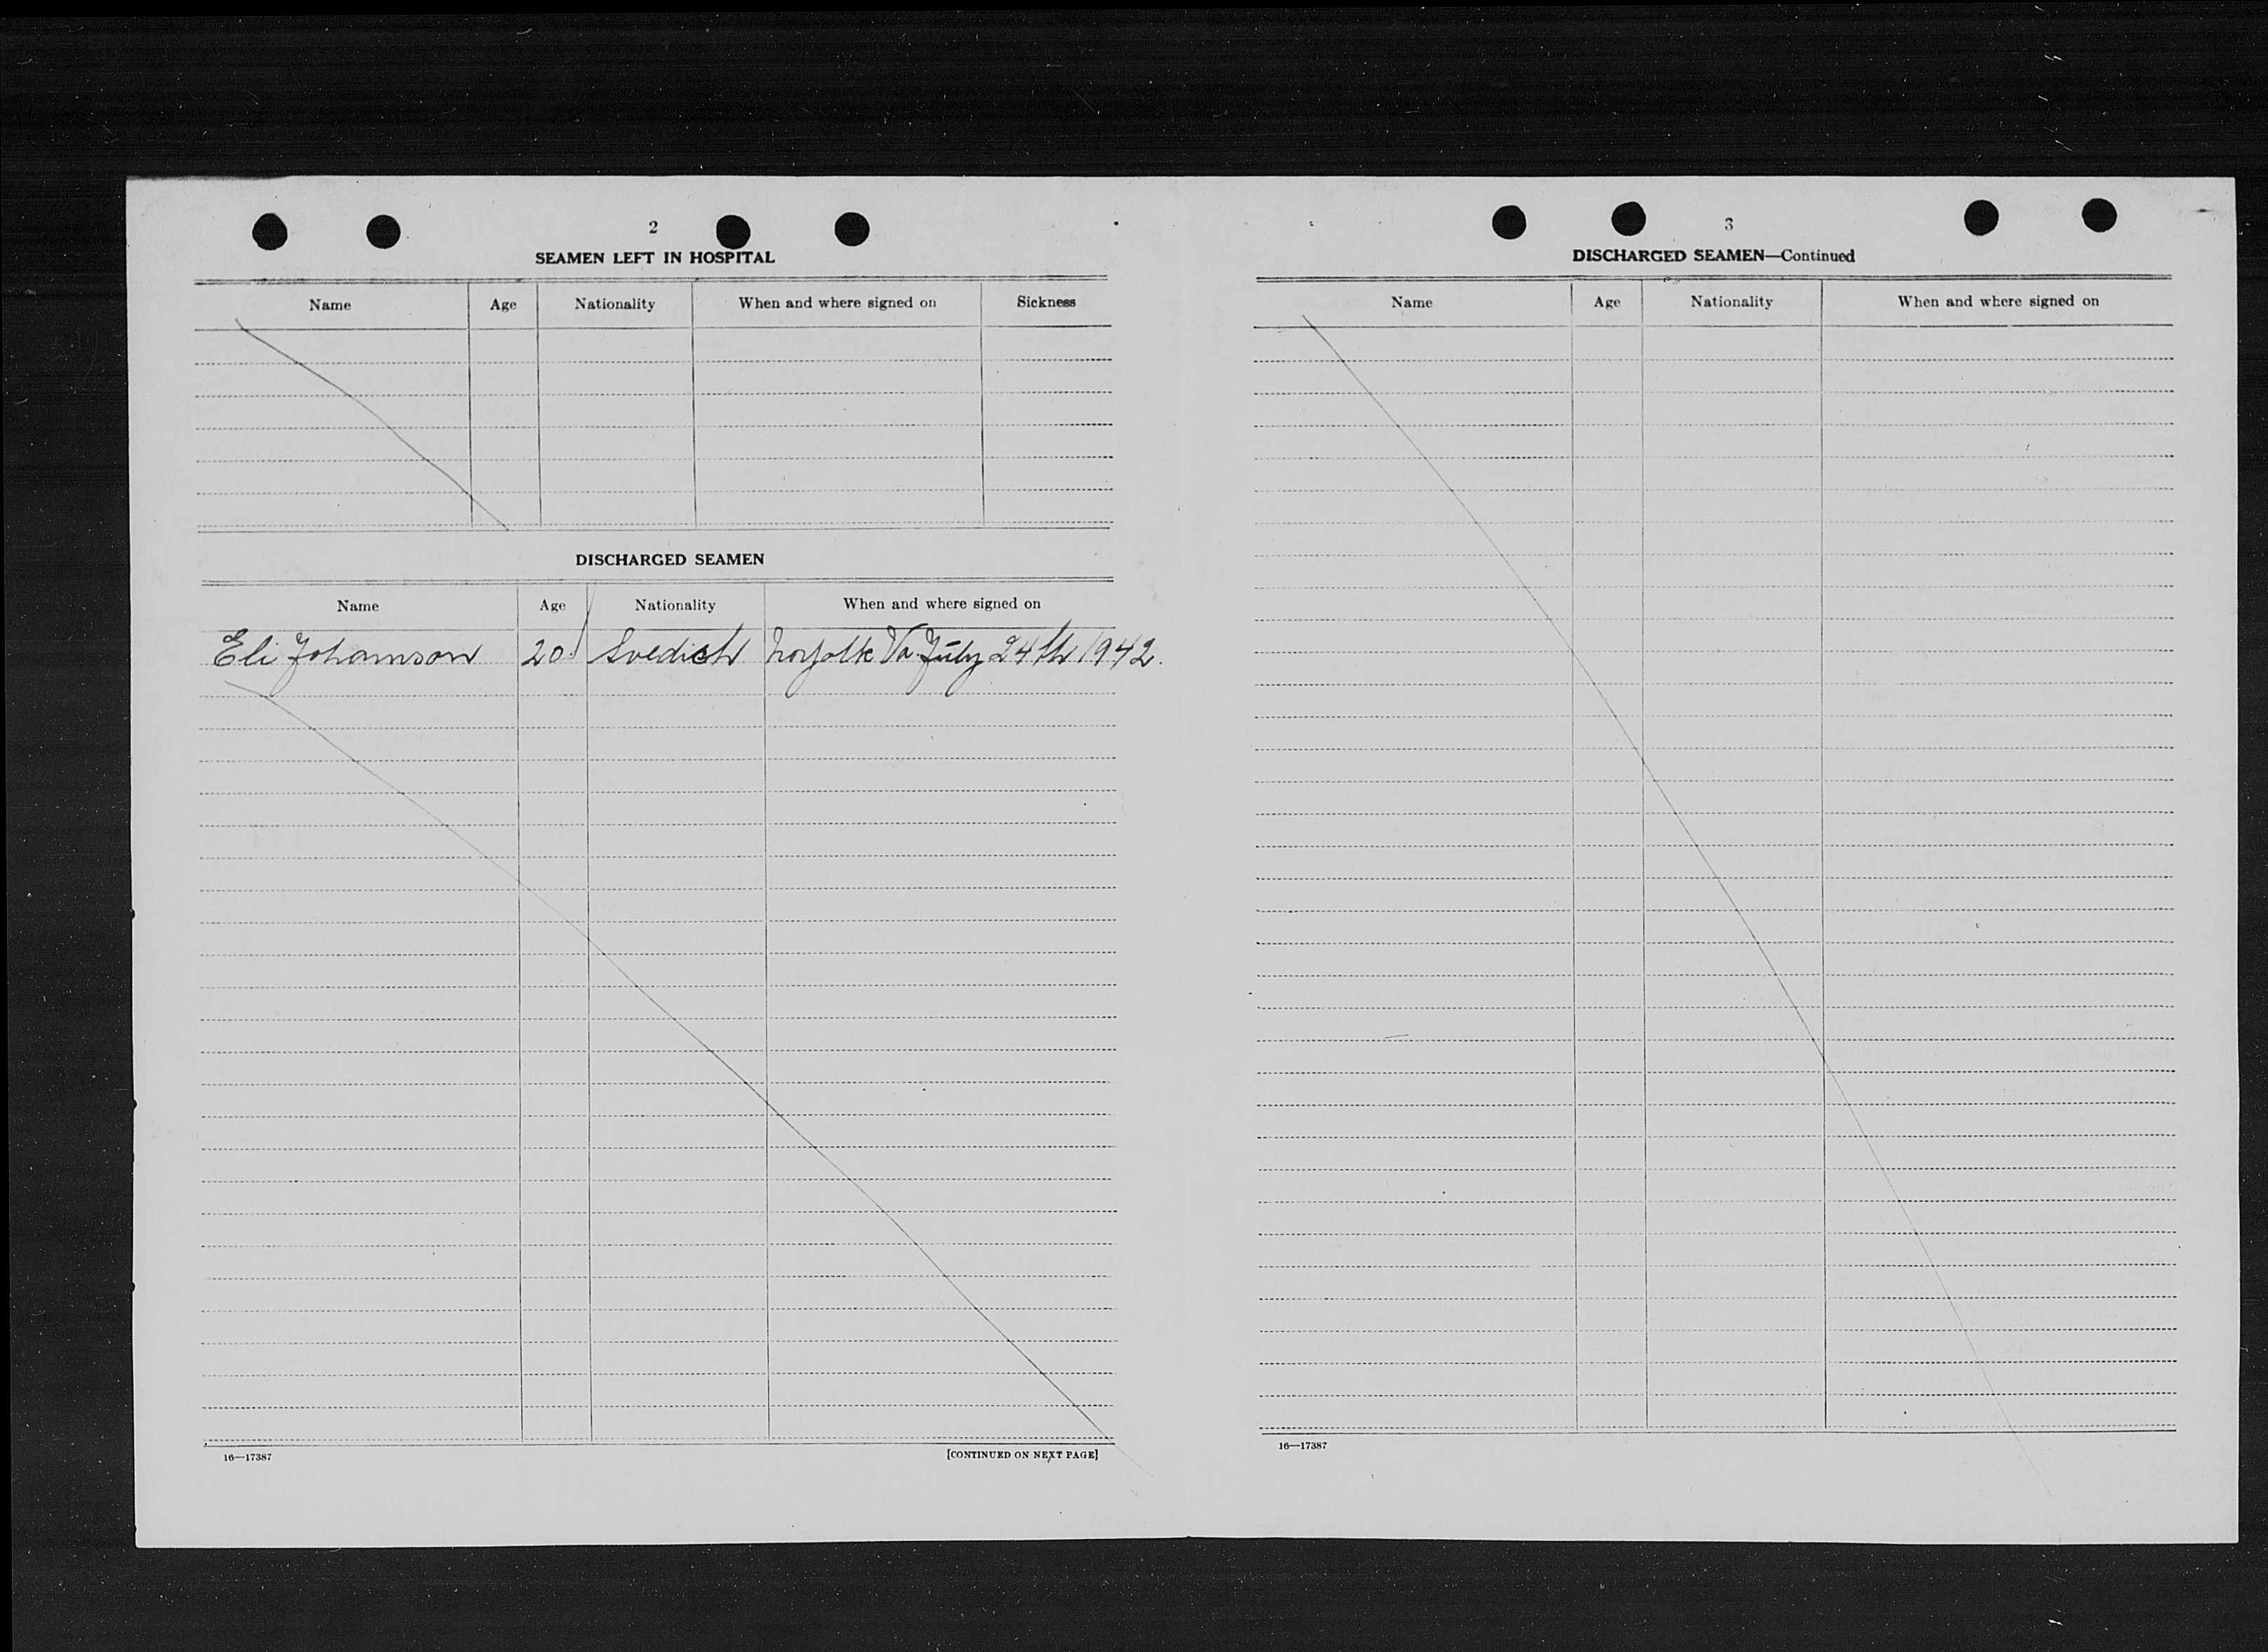 2
SEAMEN LEFT IN HOSPITAL
Name Age Nationality When and where signed on Sickness
DISCHARGED SEAMEN
Name Age Nationality When and where signed on
Eli Johanson 20 Svedish Norfolk Va July 24th 1942.
16—17387 [CONTINUED ON NEXT PAGE]
3
DISCHARGED SEAMEN—Continued
Name Age Nationality When and where signed on
16—17387